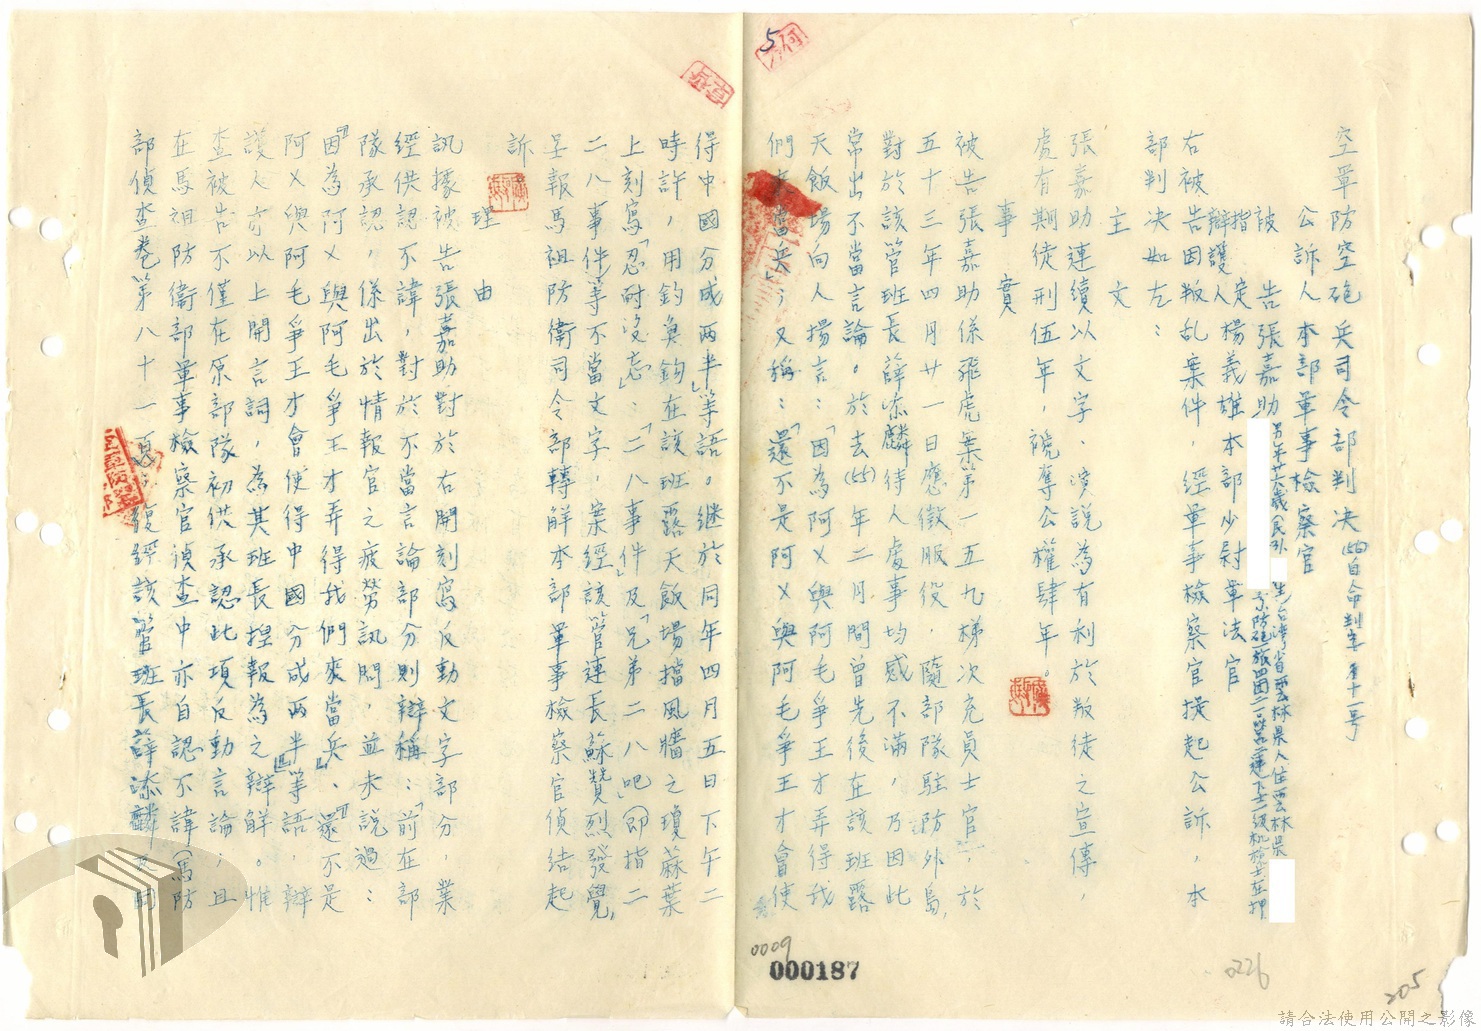 空軍防空砲兵司令部判決(56)自命判字第十一号
公訴人本部軍事檢察官
被告張嘉助
男年廿六歲(民 生台湾省雲林県人住雲林県
防砲旅四團二二營 連下士一級机槍士在押
指定
辯護人
楊義雄本部少尉軍法官
右被告因叛乱案件，經軍事檢察官提起公訴，本
部判决如左：
主文
張嘉助連續以文字、演説為有利於叛徒之宣傳，
處有期徒刑伍年，褫奪公權肆年。
事實
被告張嘉助係飛虎案第一五九梯次充員士官，於
五十三年四月廿一日應徵服役，隨部隊駐防外島，
對於該管班長薛添麟待人處事均感不滿，乃因此
常出不當言論。於去(55)年二月間曾先後在該班露
天飯場向人揚言：「因為阿乂與阿毛爭王才弄得我
們來當兵」；又稱：「還不是阿乂與阿毛爭王才會使
得中國分成兩半」等語。継於同年四月五日下午二
時許，用釣魚鈎在該班露天飯場擋風牆之瓊蔴葉
上刻寫「忍耐没忘」：「二八事件」及「兄弟二八吧」(即指二
二八事件)等不當文字，案經該管連長蘇贊烈發覺，
呈報馬祖防衛司令部轉解本部軍事檢察官偵結起
訴
理由
訊據被告張嘉助對於右開刻寫反動文字部分，業
經供認不諱，對於不當言論部分則辯稱：「前在部
隊承認，係出於情報官之疲勞訊問，並未説過：
『因為阿乂與阿毛爭王才弄得我們來當兵』、『還不是
阿乂與阿毛爭王才會使得中國分成兩半』」等語，辯
護人亦以上開言詞，為其班長揑報為之辯解。惟
查被告不僅在原部隊初供承認此項反動言論；且
在馬祖防衛部軍事檢察官偵查中亦自認不諱(馬防
部偵查卷第八十一頁)，復經該管班長薛添麟及同
5
0009
000187
0226
205
請合法使用公開之影像